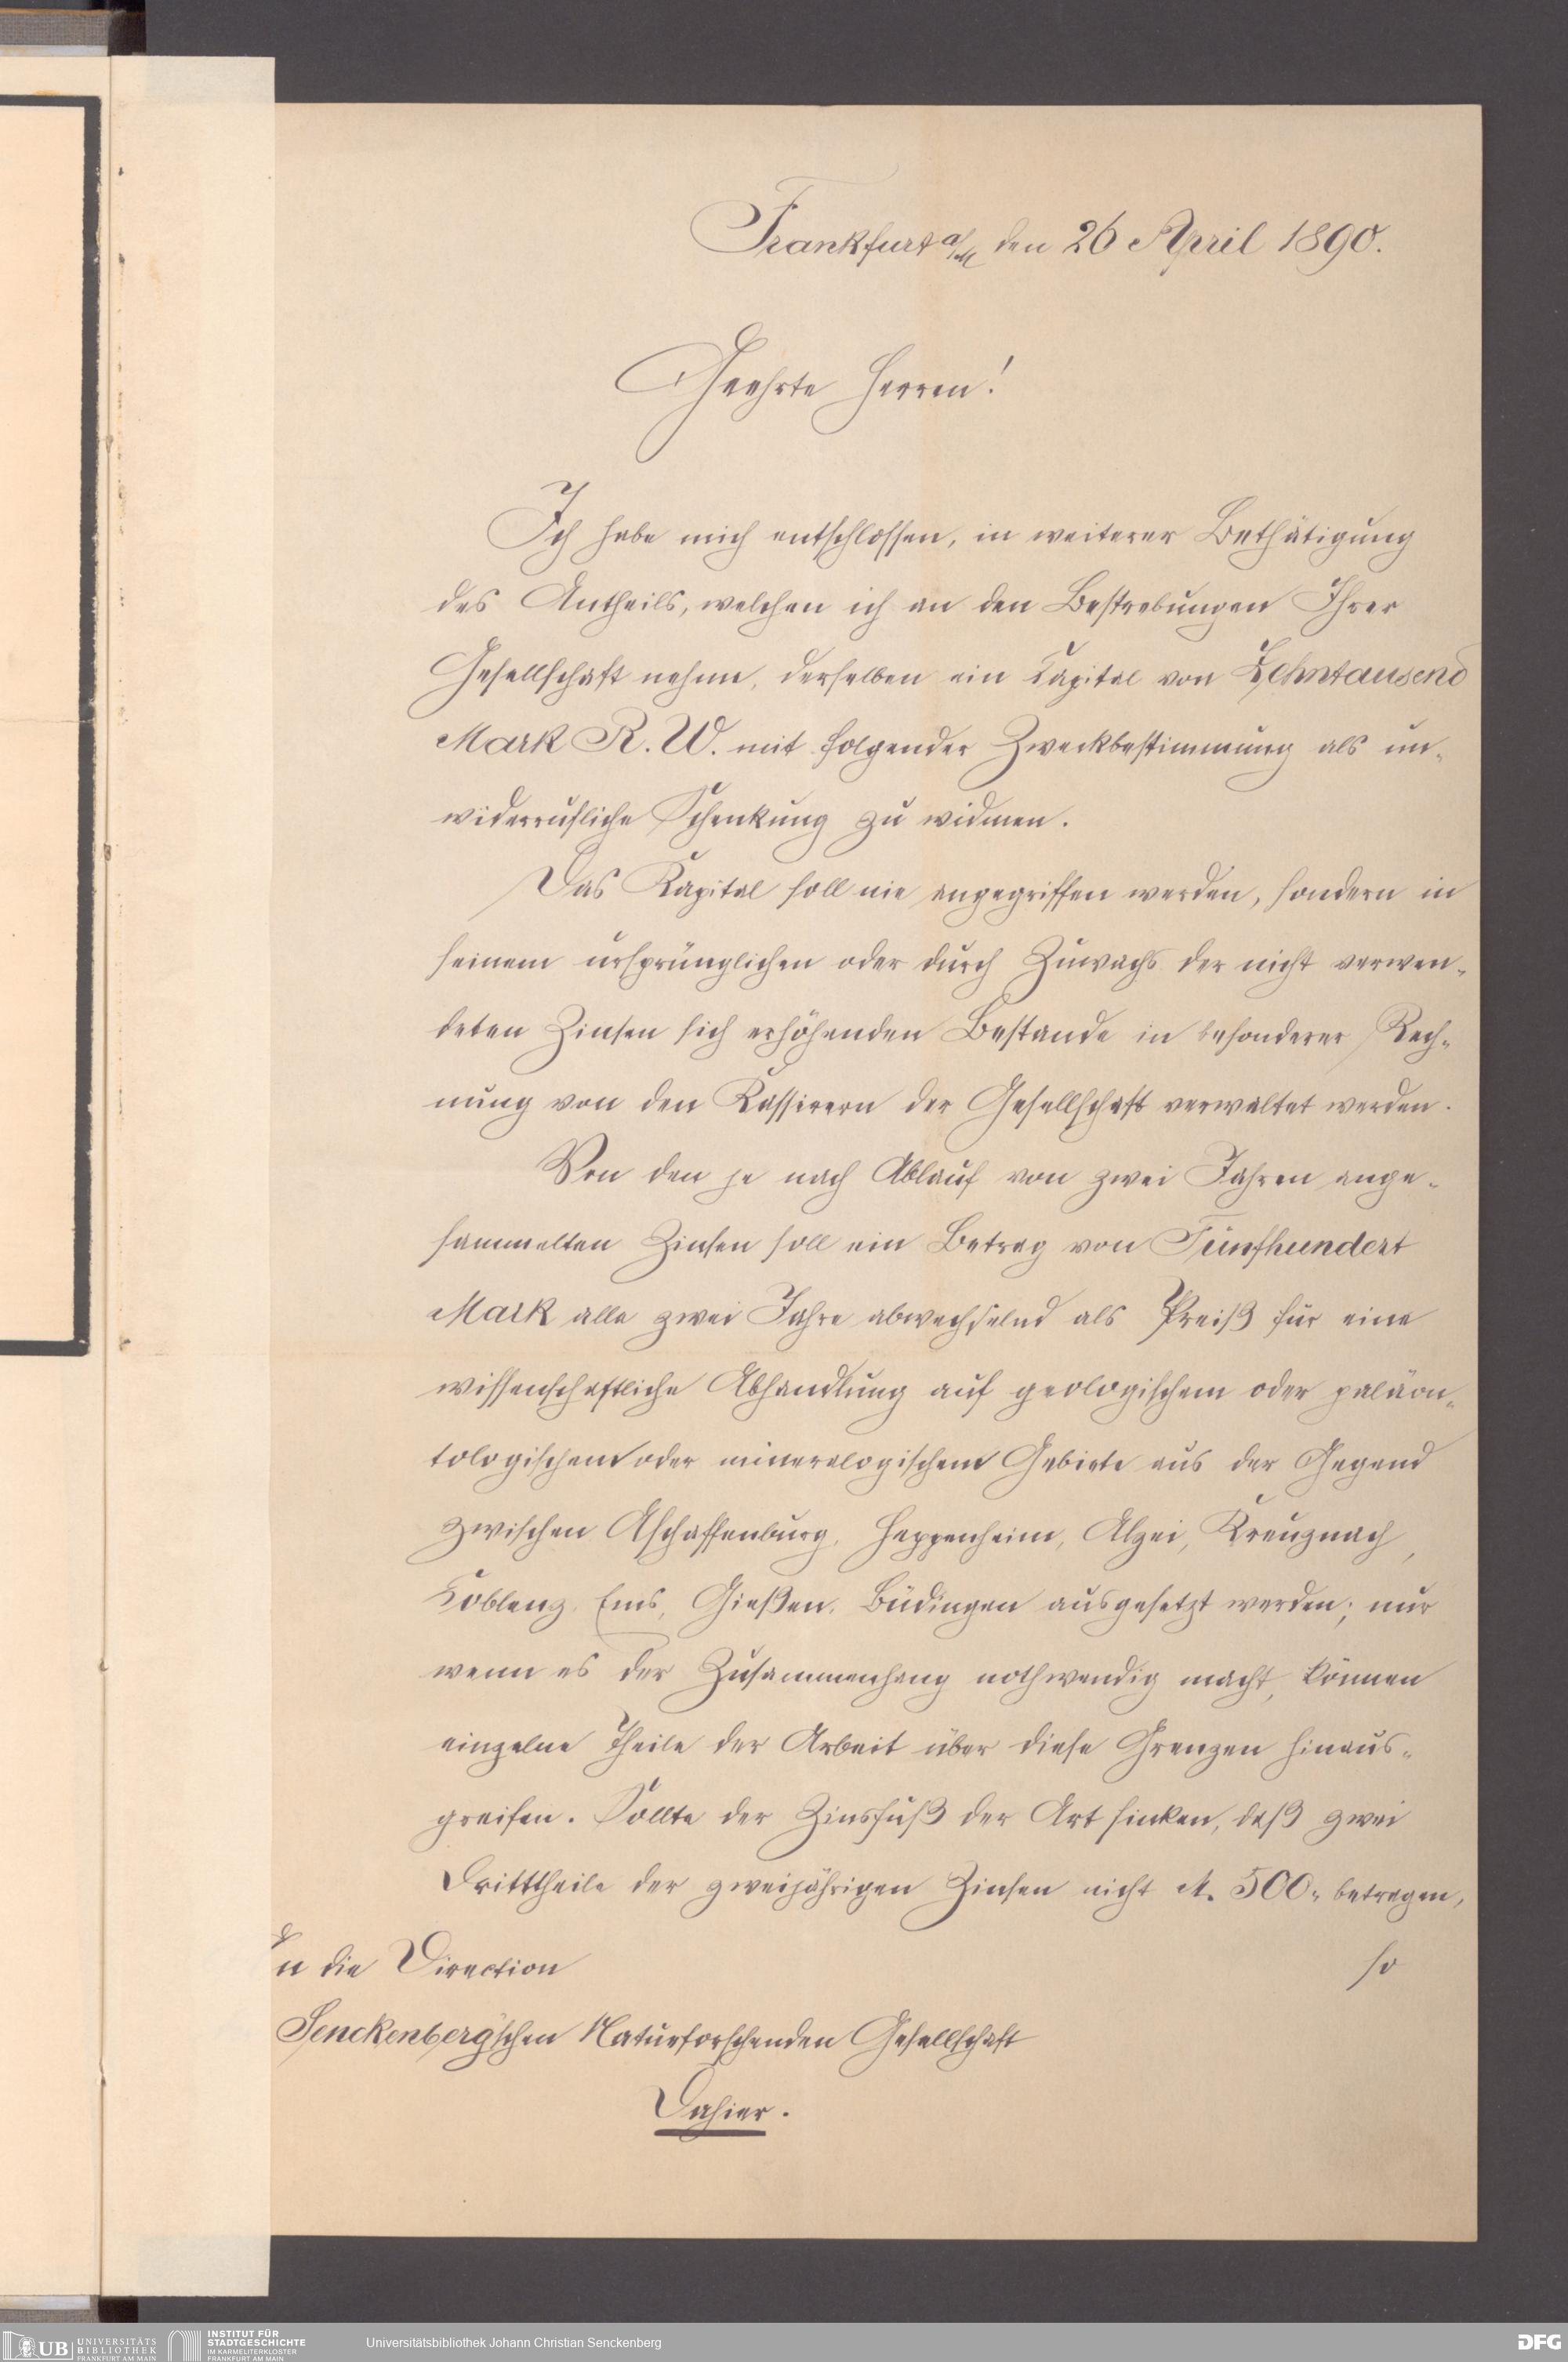 Frankfurt a/M den 26 April 1890.
Geehrte Herren!
Ich habe mich entschlossen, in weiterer Bethätigung
des Antheils, welchen ich an den Bestrebungen Ihrer
Gesellschaft nehme, derselben ein Capital von Zehntausend
Mark R. W. mit folgender Zweckbestimmung als un-
widerrufliche Schenkung zu widmen.
Das Kapital soll nie angegriffen werden, sondern in
seinem ursprünglichen oder durch Zuwachs der nicht verwen-
deten Zinsen sich erhöhenden Bestande in besonderer Rech-
nung von den Kassirern der Gesellschaft verwaltet werden.
Von den je nach Ablauf von zwei Jahren ange-
sammelten Zinsen soll ein Betrag von Fünfhundert
Mark alle zwei Jahre abwechselnd als Preiß für eine
wissenschaftliche Abhandlung auf geologischem oder paläon-
tologischem oder mineralogischem Gebiete aus der Gegend
zwischen Aschaffenburg, Heppenheim, Alzei, Kreuznach,
Coblenz, Ems, Gießen, Büdingen ausgesetzt werden; nur
wenn es der Zusammenhang nothwendig macht, können
einzelne Theile der Arbeit über diese Grenzen hinaus-
greifen. Sollte der Zinsfuß der Art sinken, daß zwei
Dritttheile der zweijährigen Zinsen nicht M. 500,- betragen,
so
n die Direction
Senckenberg'schen Naturforschenden Gesellschaft
Dahier.
UB UNIVERSITÄTS
BIBLIOTHEK
FRANKFURT AM MAIN
INSTITUT FÜR
STADTGESCHICHTE
IM KARMELITERKLOSTER
FRANKFURT AM MAIN
Universitätsbibliothek Johann Christian Senckenberg
DFG